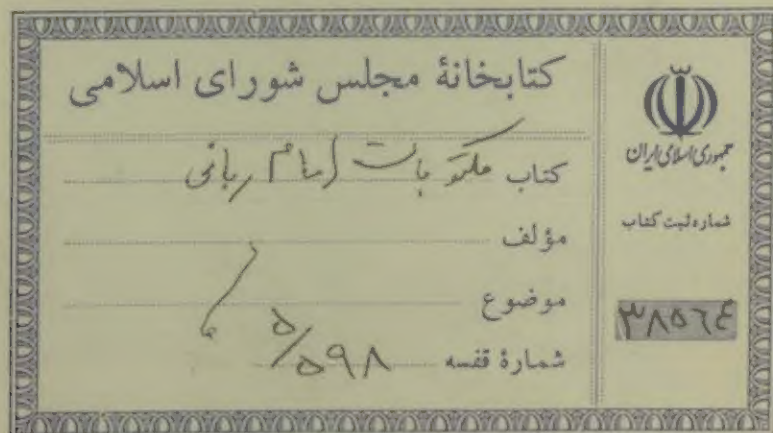 کتابخانهٔ مجلس شورای اسلامی
کتاب مکتوبات امام ربانی
مؤلف
موضوع
شمارهٔ قفسه ۵/۵۹۸
جمهوری اسلامی ایران
شماره ثبت کتاب
۳۸۵۶٤